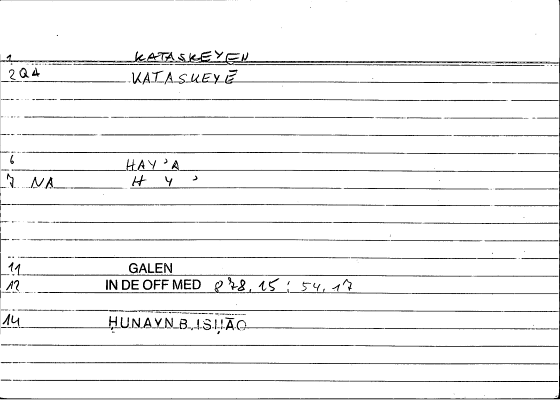 1 KATASKEYEN
2 QA KATASKEYĒ
6 HAY'A
7 NA H Y '
11 GALEN
12 IN DE OFF MED 878,15 : 54,17
14 ḤUNAYN B. ISḤĀQ